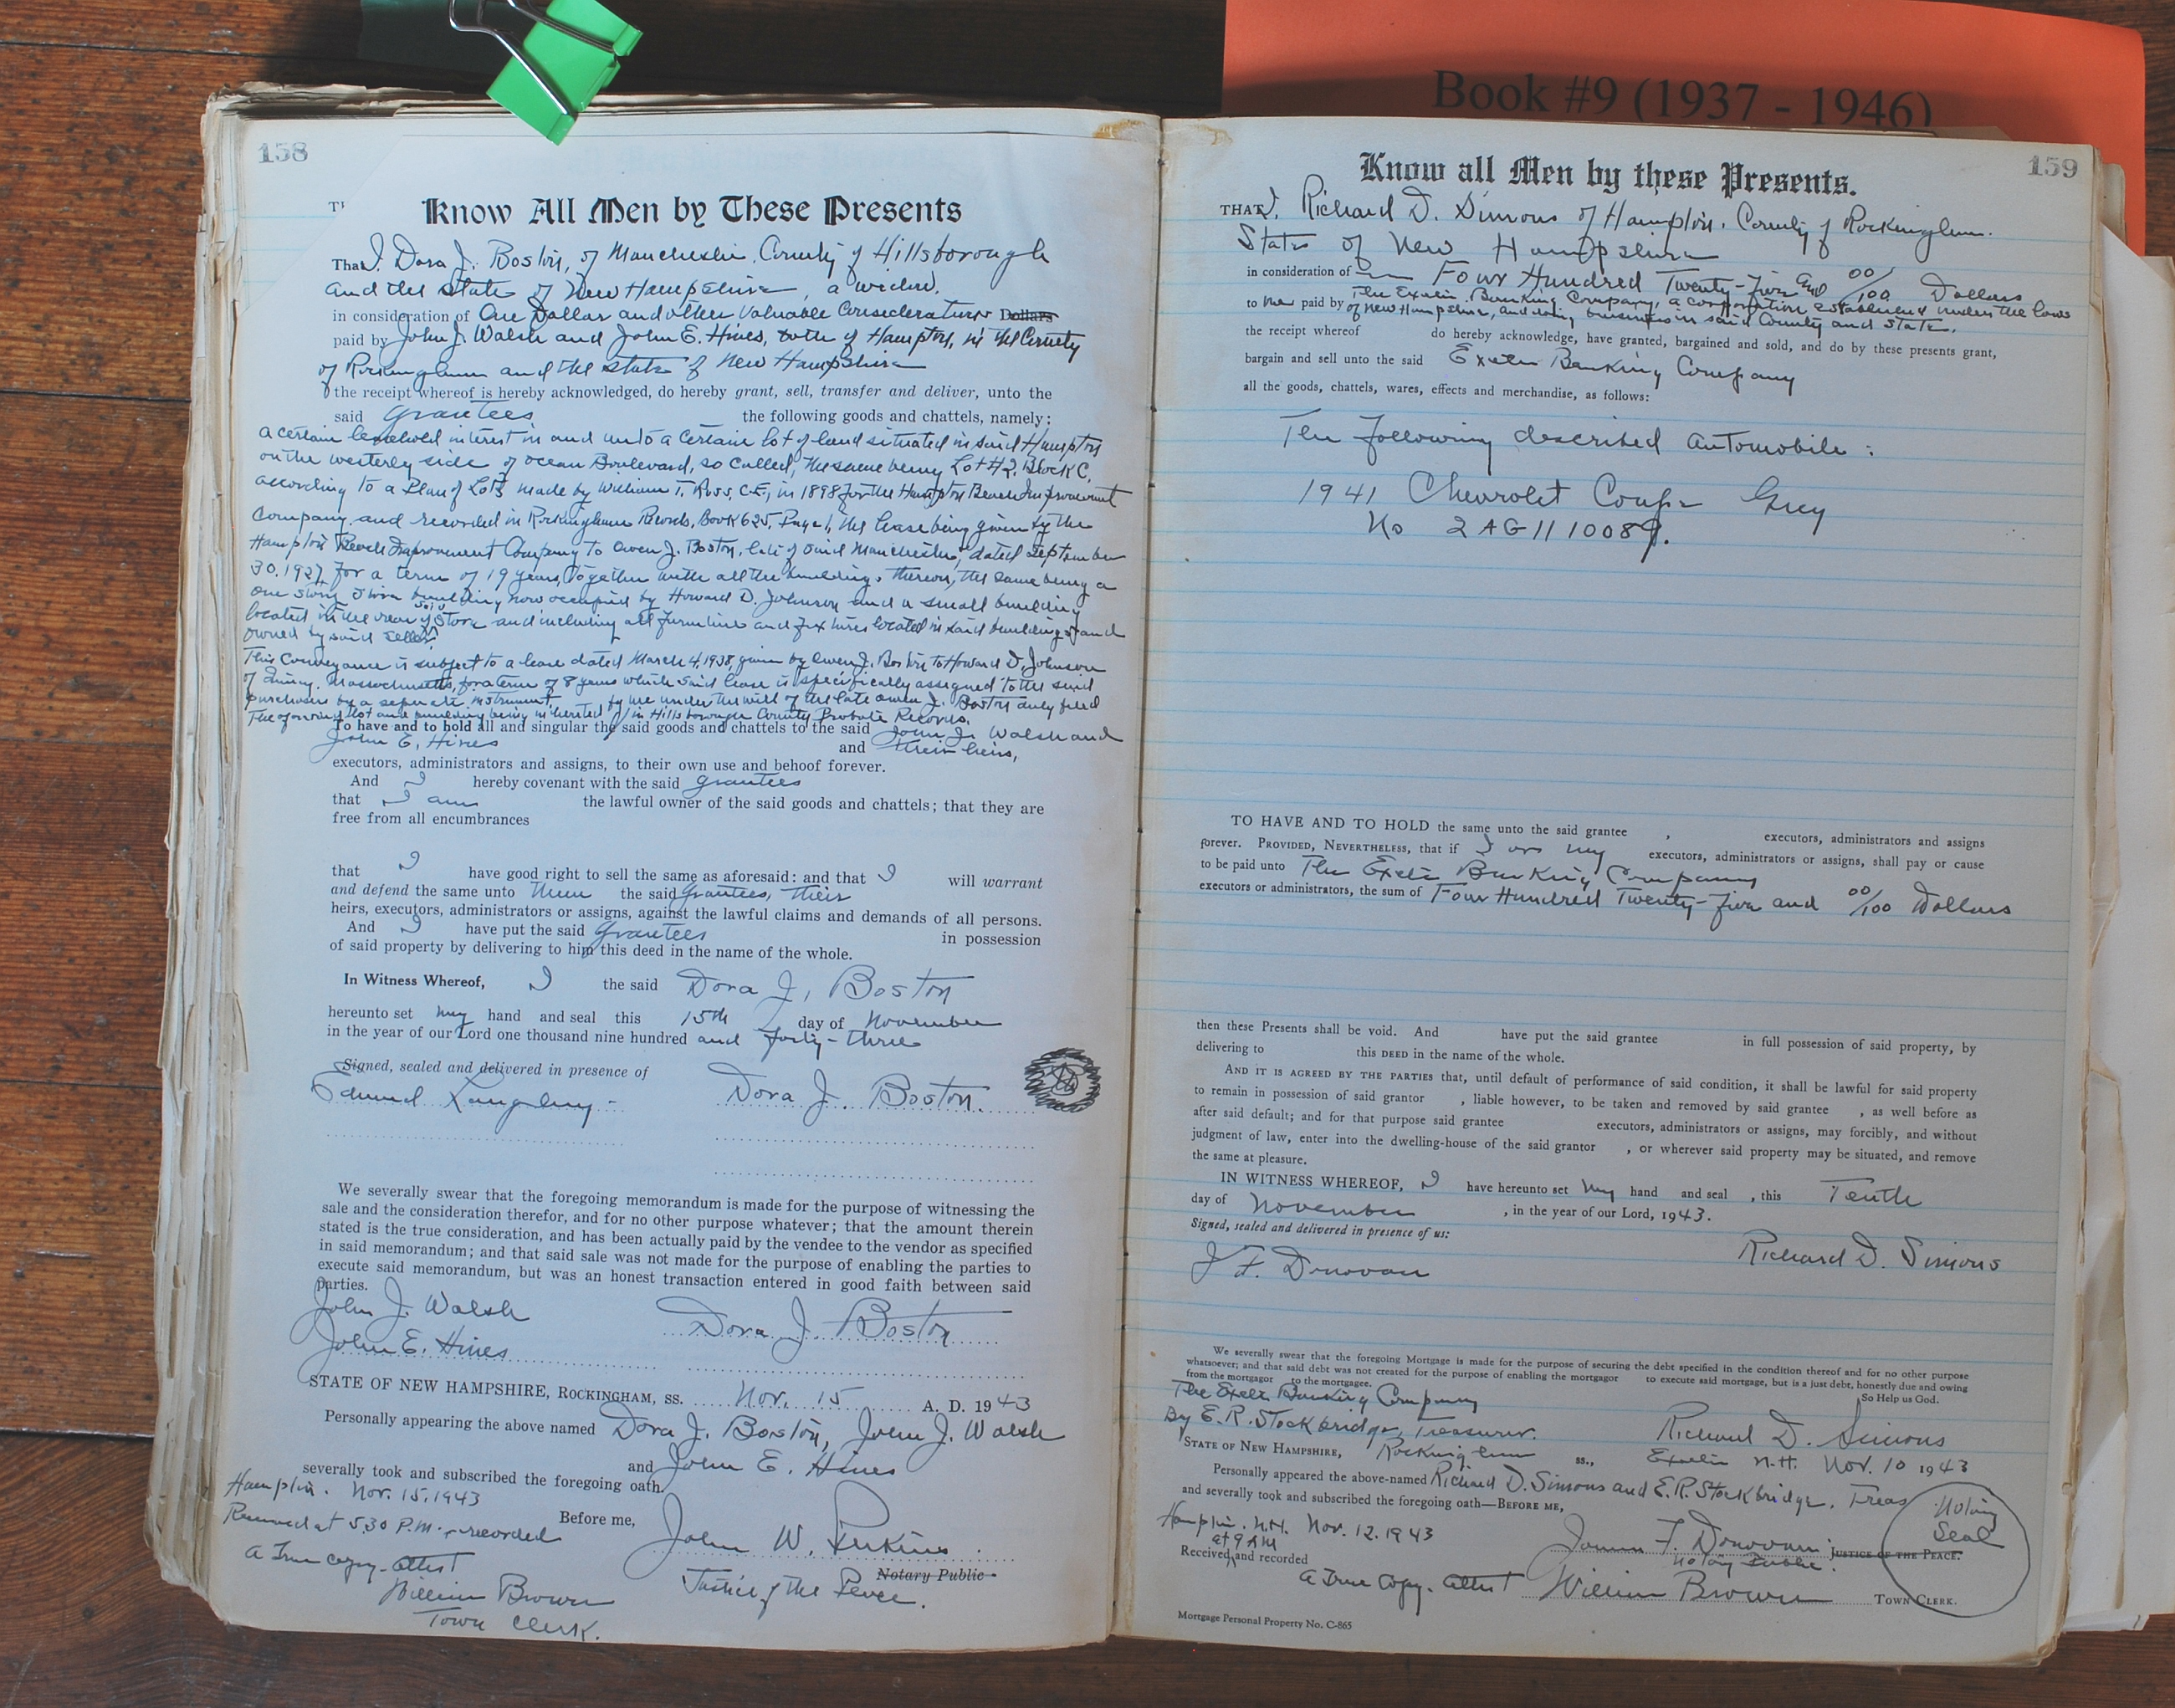 Book #9 (1937 - 1946)
158
TH
Know All Men by These Presents
That I, Dora J. Boston, of Manchester, County of Hillsborough
and the State of New Hampshire, a widow,
in consideration of One Dollar and other Valuable Considerations Dollars
paid by John J. Walsh and John E. Hines, both of Hampton, in the County
of Rockingham and the State of New Hampshire
the receipt whereof is hereby acknowledged, do hereby grant, sell, transfer and deliver, unto the
said grantees the following goods and chattels, namely:
a certain leasehold interest in and unto a certain lot of land situated in said Hampton
on the westerly side of Ocean Boulevard, so called, the same being Lot #2, Block C,
according to a Plan of Lots made by William T. Ross, C.E., in 1898 for the Hampton Beach Improvement
Company, and recorded in Rockingham Records, Book 625, Page 1, the lease being given by the
Hampton Beach Improvement Company to Owen J. Boston, late of said Manchester, dated September
30, 1927 for a term of 19 years, together with all the buildings thereon, the same being a
one story store building now occupied by Howard D. Johnson and a small building
located in the rear of said store and including all furniture and fixtures located in said buildings and
owned by said seller.
This Conveyance is subject to a lease dated March 4, 1938, given by Owen J. Boston to Howard D. Johnson
of Quincy, Massachusetts, for a term of 8 years which said lease is specifically assigned to the said
purchasers by a separate instrument.
The aforesaid lot and building being inherited by me under the will of the late Owen J. Boston duly filed
in Hillsborough County Probate Records.
To have and to hold all and singular the said goods and chattels to the said John J. Walsh and
John E. Hines and their heirs,
executors, administrators and assigns, to their own use and behoof forever.
And I hereby covenant with the said grantees
that I am the lawful owner of the said goods and chattels; that they are
free from all encumbrances
that I have good right to sell the same as aforesaid: and that I will warrant
and defend the same unto them the said grantees, their
heirs, executors, administrators or assigns, against the lawful claims and demands of all persons.
And I have put the said grantees in possession
of said property by delivering to him this deed in the name of the whole.
In Witness Whereof, I the said Dora J. Boston
hereunto set my hand and seal this 15th day of November
in the year of our Lord one thousand nine hundred and forty-three
Signed, sealed and delivered in presence of
Edmund Langley Dora J. Boston.
We severally swear that the foregoing memorandum is made for the purpose of witnessing the
sale and the consideration therefor, and for no other purpose whatever; that the amount therein
stated is the true consideration, and has been actually paid by the vendee to the vendor as specified
in said memorandum; and that said sale was not made for the purpose of enabling the parties to
execute said memorandum, but was an honest transaction entered in good faith between said
parties.
John J. Walsh Dora J. Boston
John E. Hines
STATE OF NEW HAMPSHIRE, ROCKINGHAM, ss. Nov. 15 A. D. 1943
Personally appearing the above named Dora J. Boston, John J. Walsh
and John E. Hines
severally took and subscribed the foregoing oath.
Hampton. Nov. 15, 1943
Received at 5.30 P.M. & recorded
Before me,
John W. Perkins
A True copy - attest
Notary Public
Justice of the Peace.
William Brown
Town Clerk.
159
Know all Men by these Presents.
THAT I, Richard D. Simons of Hampton, County of Rockingham.
State of New Hampshire
in consideration of Four Hundred Twenty-Five and 00/100 Dollars
to me paid by The Exeter Banking Company, a corporation established under the laws
of New Hampshire, and doing business in said County and State.
the receipt whereof do hereby acknowledge, have granted, bargained and sold, and do by these presents grant,
bargain and sell unto the said Exeter Banking Company
all the goods, chattels, wares, effects and merchandise, as follows:
The following described automobile:
1941 Chevrolet Coupe Grey
No 2AG1110089.
TO HAVE AND TO HOLD the same unto the said grantee , executors, administrators and assigns
forever. PROVIDED, NEVERTHELESS, that if I or my executors, administrators or assigns, shall pay or cause
to be paid unto The Exeter Banking Company
executors or administrators, the sum of Four Hundred Twenty-Five and 00/100 Dollars
then these Presents shall be void. And have put the said grantee in full possession of said property, by
delivering to this DEED in the name of the whole.
AND IT IS AGREED BY THE PARTIES that, until default of performance of said condition, it shall be lawful for said property
to remain in possession of said grantor , liable however, to be taken and removed by said grantee , as well before as
after said default; and for that purpose said grantee executors, administrators or assigns, may forcibly, and without
judgment of law, enter into the dwelling-house of the said grantor , or wherever said property may be situated, and remove
the same at pleasure.
IN WITNESS WHEREOF, I have hereunto set my hand and seal , this Tenth
day of November , in the year of our Lord, 1943.
Signed, sealed and delivered in presence of us:
J. F. Donovan Richard D. Simons
We severally swear that the foregoing Mortgage is made for the purpose of securing the debt specified in the condition thereof and for no other purpose
whatsoever; and that said debt was not created for the purpose of enabling the mortgagor to execute said mortgage, but is a just debt, honestly due and owing
from the mortgagor to the mortgagee. So Help us God.
The Exeter Banking Company
By E. R. Stockbridge, Treasurer. Richard D. Simons
STATE OF NEW HAMPSHIRE, Rockingham ss., Exeter N.H. Nov. 10 1943
Personally appeared the above-named Richard D. Simons and E. R. Stockbridge, Treas
and severally took and subscribed the foregoing oath—BEFORE ME,
Notary
Seal
Hampton. N.H. Nov. 12. 1943
at 9 AM
James F. Donovan JUSTICE OF THE PEACE.
Notary Public.
Received and recorded
A True Copy. attest William Brown TOWN CLERK.
Mortgage Personal Property No. C-865